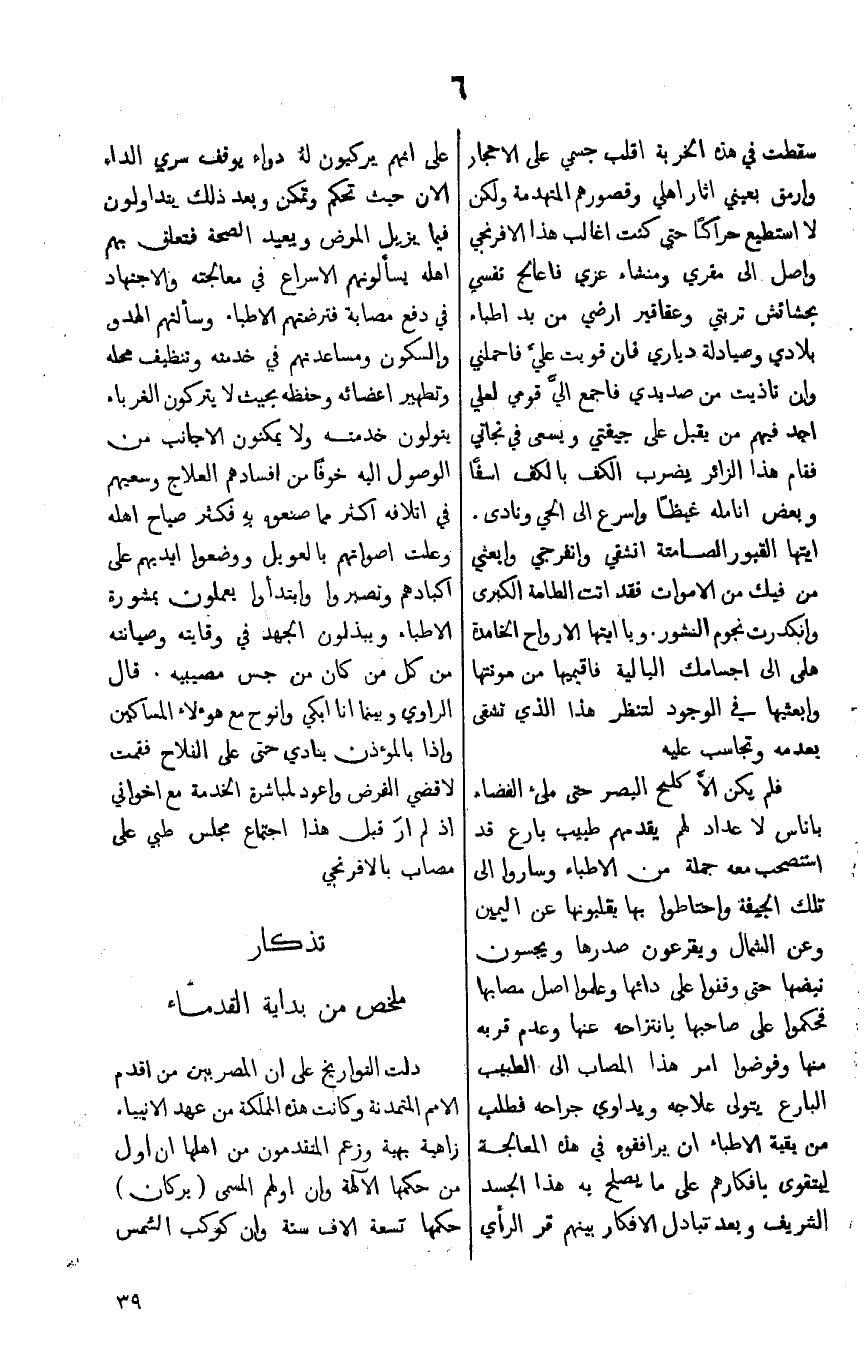 ٦
سقطت في هذه الخربة اقلب جسمي على الاحجار
وارمق بعيني اثار اهلي وقصورهم المنهدمة ولكن
لا استطيع حراكًا حتى كنت اغالب هذا الافرنجي
واصل الى مقري ومنشاء عزي فاعالج نفسي
بحشائش تربتي وعقاقير ارضي من يد اطباء
بلادي وصيادلة دياري فان قويت عليَّ فاحملني
وان تاذيت من صديدي فاجمع اليَّ قومي لعلي
اجد فيهم من يقبل على جيفتي ويسعى في نجاتي
فقام هذا الزائر يضرب الكف بالكف اسفًا
وبعض انامله غيظًا واسرع الى الحي ونادى .
ايتها القبور الصامتة انشقي وانفرجي وابعثي
من فيك من الاموات فقد اتت الطامة الكبرى
وانكدرت نجوم النشور . ويا ايتها الارواح الخامدة
هلمي الى اجسامك البالية فاقيميها من موتتها
وابعثيها في الوجود لتنظر هذا الذي تشقى
بعدمه وتحاسب عليه
فلم يكن الاَّ كلمح البصر حتى ملئ الفضاء
باناس لا عداد لهم يقدمهم طبيب بارع قد
استصحب معه جملة من الاطباء وساروا الى
تلك الجيفة واحتاطوا بها يقلبونها عن اليمين
وعن الشمال ويقرعون صدرها ويجسون
نبضها حتى وقفوا على دائها وعلموا اصل مصابها
فحكموا على صاحبها بانتزاحه عنها وعدم قربه
منها وفوضوا امر هذا المصاب الى الطبيب
البارع يتولى علاجه ويداوي جراحه فطلب
من بقية الاطباء ان يرافقوه في هذه المعالجة
ليتقوى بافكارهم على ما يصلح به هذا الجسد
الشريف وبعد تبادل الافكار بينهم قر الرأي
على انهم يركبون لهُ دواء يوقف سري الداء
الان حيث تحكم وتمكن وبعد ذلك يتداولون
فيما يزيل المرض ويعيد الصحة فتعلق بهم
اهله يسألونهم الاسراع في معالجته والاجتهاد
في دفع مصابه فترضتهم الاطباء وسألتهم الهدو
والسكون ومساعدتهم في خدمته وتنظيف محله
وتطهير اعضائه وحفظه بحيث لا يتركون الغرباء
يتولون خدمته ولا يمكنون الاجانب من
الوصول اليه خوفًا من افسادهم العلاج وسعيهم
في اتلافه اكثر مما صنعوه بهِ فكثر صياح اهله
وعلت اصواتهم بالعويل ووضعوا ايديهم على
اكبادهم وتصبروا وابتدأوا يعملون بمشورة
الاطباء ويبذلون الجهد في وقايته وصيانته
من كل من كان من جس مصيبيه . قال
الراوي وبينما انا ابكي وانوح مع هوءلاء المساكين
واذا بالموءذن ينادي حتى على الفلاح فقمت
لاقضي الفرض واعود لمباشرة الخدمة مع اخواني
اذ لم ارَ قبل هذا اجتماع مجلس طبي على
مصاب بالافرنجي
تذكار
ملخص من بداية القدماء
دلت التواريخ على ان المصريين من اقدم
الامم المتمدنة وكانت هذه المملكة من عهد الانبياء
زاهية بهية وزعم المتقدمون من اهلها ان اول
من حكمها الآلهة وان اولهم المسمى ( بركان )
حكمها تسعة الاف سنة وان كوكب الشمس
٣٩